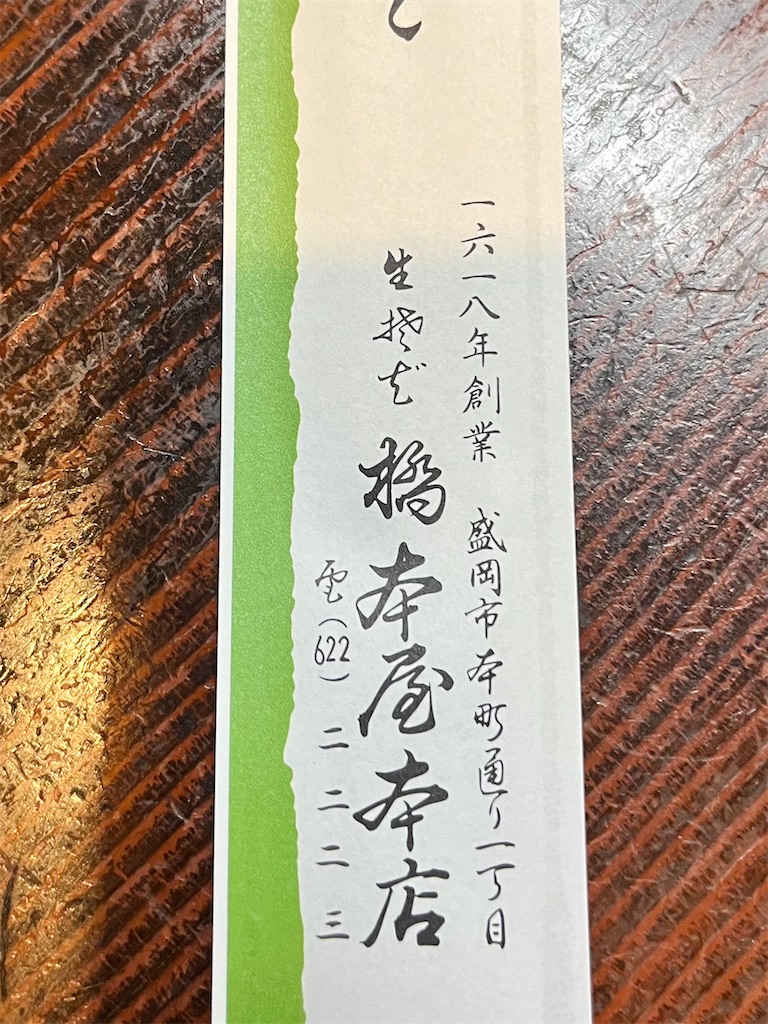 一六一八年創業 盛岡市本町通り一丁目
生そば 橋本屋本店
電(622)二二二三